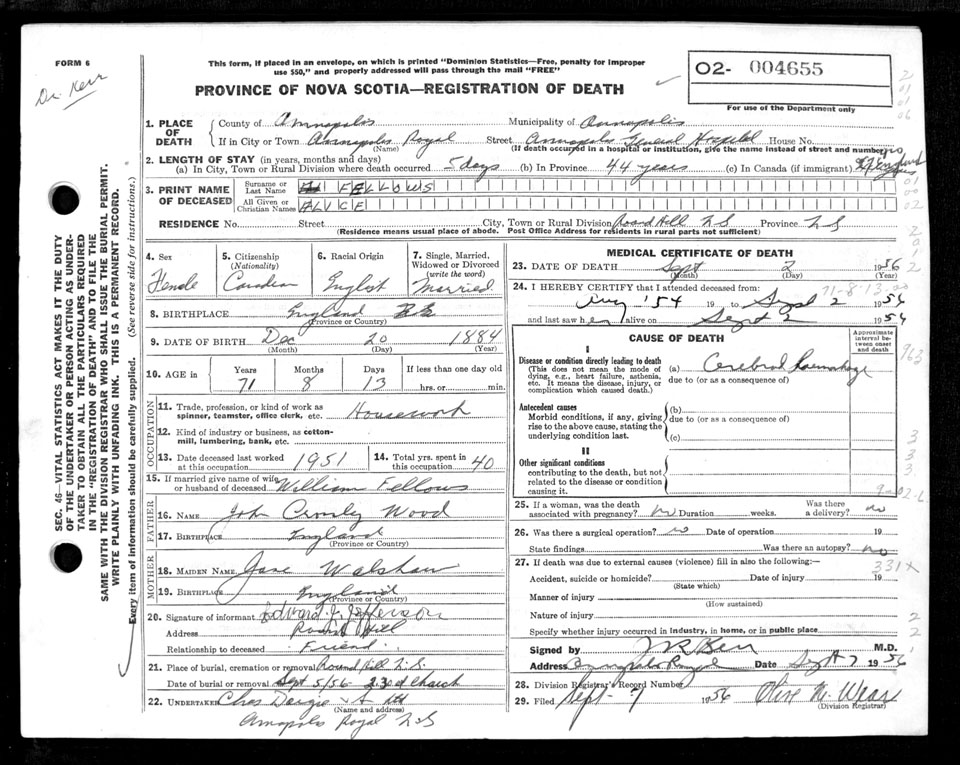 FORM 6
Dr. Kerr
This form, if placed in an envelope, on which is printed "Dominion Statistics—Free, penalty for improper
use $50," and properly addressed will pass through the mail "FREE"
O2- 004655
For use of the Department only
PROVINCE OF NOVA SCOTIA—REGISTRATION OF DEATH
SEC. 46—VITAL STATISTICS ACT MAKES IT THE DUTY
OF THE UNDERTAKER OR PERSON ACTING AS UNDER-
TAKER TO OBTAIN ALL THE PARTICULARS REQUIRED
IN THE "REGISTRATION OF DEATH" AND TO FILE THE
SAME WITH THE DIVISION REGISTRAR WHO SHALL ISSUE THE BURIAL PERMIT.
WRITE PLAINLY WITH UNFADING INK. THIS IS A PERMANENT RECORD.
Every item of information should be carefully supplied. (See reverse side for instructions.)
1. PLACE OF DEATH
County of Annapolis Municipality of Annapolis
If in City or Town Annapolis Royal Street Annapolis General Hospital House No.
(Name) (If death occurred in a hospital or institution, give the name instead of street and number)
2. LENGTH OF STAY (in years, months and days)
(a) In City, Town or Rural Division where death occurred 5 days (b) In Province 44 years (c) In Canada (if immigrant)
3. PRINT NAME OF DECEASED
Surname or Last Name FELLOWS
All Given or Christian Names ALICE
RESIDENCE No. Street City, Town or Rural Division Round Hill N S Province N S
(Residence means usual place of abode. Post Office Address for residents in rural parts not sufficient)
4. Sex Female
5. Citizenship (Nationality) Canadian
6. Racial Origin English
7. Single, Married, Widowed or Divorced (write the word) Married
8. BIRTHPLACE England
(Province or Country)
9. DATE OF BIRTH Dec 20 1884
(Month) (Day) (Year)
10. AGE in Years Months Days If less than one day old
71 8 13 hrs. or min.
OCCUPATION
11. Trade, profession or kind of work as
spinner, teamster, office clerk, etc. Housework
12. Kind of industry or business, as cotton-
mill, lumbering, bank, etc.
13. Date deceased last worked
at this occupation 1951
14. Total yrs. spent
in this occupation 40
15. If married give name of wife
or husband of deceased William Fellows
FATHER
16. NAME John Crosly Wood
17. BIRTHPLACE England
(Province or Country)
MOTHER
18. MAIDEN NAME Jane Walshaw
19. BIRTHPLACE England
(Province or Country)
20. Signature of informant Edward J. Jefferson
Address Round Hill
Relationship to deceased Friend
21. Place of burial, cremation or removal Round Hill N.S.
Date of burial or removal Sept 5/56 2.30 at Church
22. UNDERTAKER Chas Dargie
(Name and address)
Annapolis Royal N S
MEDICAL CERTIFICATE OF DEATH
23. DATE OF DEATH Sept 2 1956
(Month) (Day) (Year)
71-8-13-00
24. I HEREBY CERTIFY that I attended deceased from:
Aug '54 19 to Sept 2 1956
and last saw her alive on Sept 2 1956
CAUSE OF DEATH
Approximate interval between onset and death
I
Disease or condition directly leading to death
(This does not mean the mode of
dying, e.g., heart failure, asthenia,
etc. It means the disease, injury, or
complication which caused death.)
(a) Cerebral haemorrhage
due to (or as a consequence of)
Antecedent causes
Morbid conditions, if any, giving
rise to the above cause, stating the
underlying condition last.
(b)
due to (or as a consequence of)
(c)
II
Other significant conditions
contributing to the death, but not
related to the disease or condition
causing it.
25. If a woman, was the death
associated with pregnancy? no Duration weeks. Was there
a delivery? no
26. Was there a surgical operation? no Date of operation 19
State findings Was there an autopsy? no
27. If death was due to external causes (violence) fill in also the following:—
331x
Accident, suicide or homicide? Date of injury 19
(State which)
Manner of injury
(How sustained)
Nature of injury
Specify whether injury occurred in industry, in home, or in public place
Signed by M.D.
Address Annapolis Royal Date Sept 7 1956
28. Division Registrar's Record Number
29. Filed Sept 7 1956 Olive M. Wear
(Division Registrar)